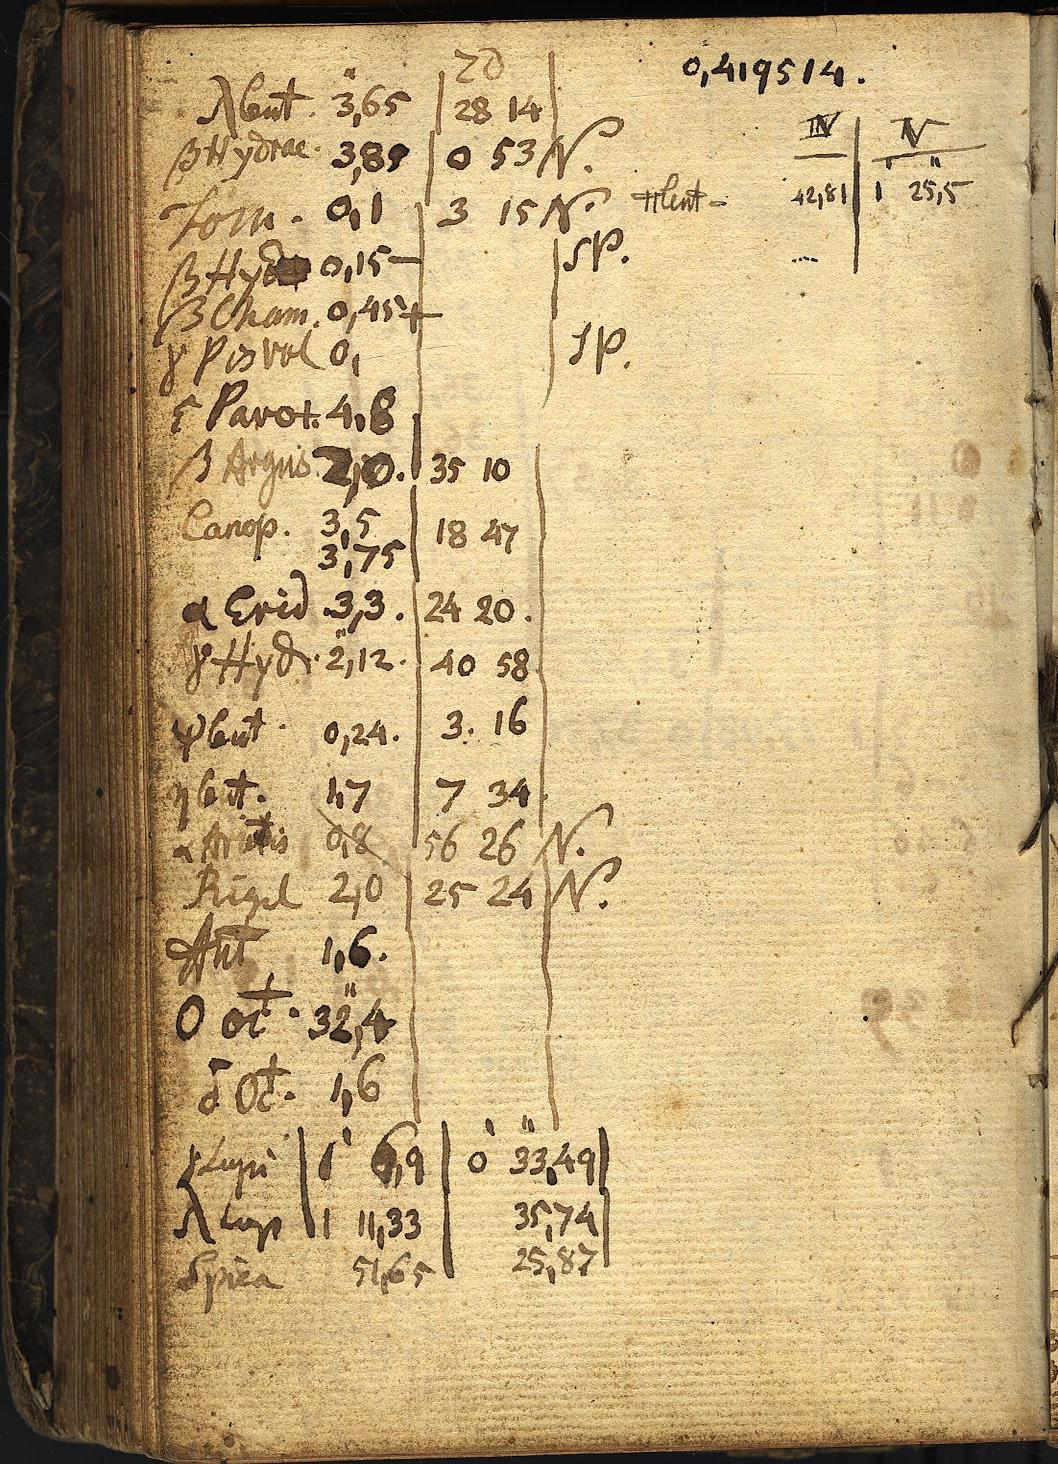 ZD 0,419514.
λ Cent. 3",65 28 14
β Hydrae. 3,89 0 53 N. IV V
Fom. 0,1 3 15 N. Cent - 42,81 1' 25",5
β Hyd 0,15- SP. ...
β Cham. 0,45+
γ Pis vol 0, SP.
Pavo. 4,8
β Argus 2,0. 35 10
Canop. 3,5 18 47
3,75
α Erid 3,3. 24 20.
γ Hyd. 2",12. 40 58
ψ Cent. 0,24. 3. 16
η Cent. 1,7 7 34
α Arietis 0,8 56 26 N.
Rigel 2,0 25 24 N.
Ant 1,6.
O oct. 32",4
δ Oct. 1,6
γ Lupi 1' 6,9 0' 33",49
λ Lup 1 11,33 35,74
Spica 51,65 25,87